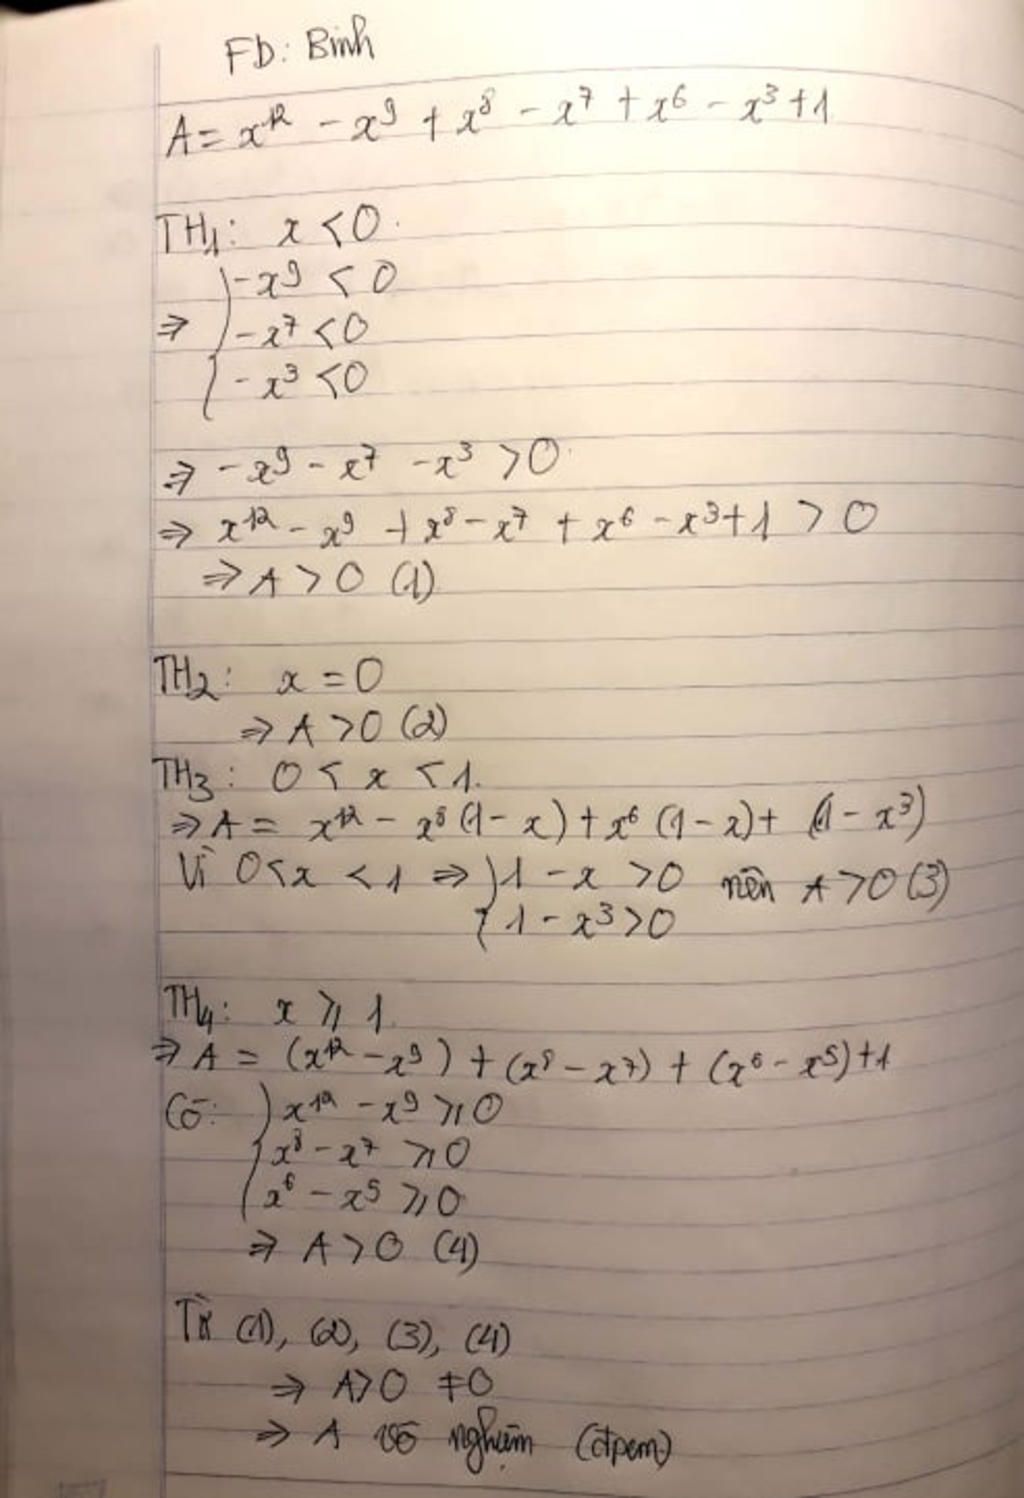 FD: Bình
A = x¹² - x⁹ + x⁸ - x⁷ + x⁶ - x³ + 1
TH₁: x < 0.
-x⁹ < 0
⇒ { -x⁷ < 0
-x³ < 0
⇒ -x⁹ - x⁷ - x³ > 0
⇒ x¹² - x⁹ + x⁸ - x⁷ + x⁶ - x³ + 1 > 0
⇒ A > 0 (1)
TH₂: x = 0
⇒ A > 0 (2)
TH₃: 0 < x < 1.
⇒ A = x¹² - x⁸ (1 - x) + x⁶ (1 - x) + (1 - x³)
Vì 0 < x < 1 ⇒ { 1 - x > 0 nên A > 0 (3)
1 - x³ > 0
TH₄: x ⩾ 1.
⇒ A = (x¹² - x⁹) + (x⁸ - x⁷) + (x⁶ - x⁵) + 1
Có: { x¹² - x⁹ ⩾ 0
x⁸ - x⁷ ⩾ 0
x⁶ - x⁵ ⩾ 0
⇒ A > 0 (4)
Từ (1), (2), (3), (4)
⇒ A > 0 ≠ 0
⇒ A vô nghiệm (đpcm)